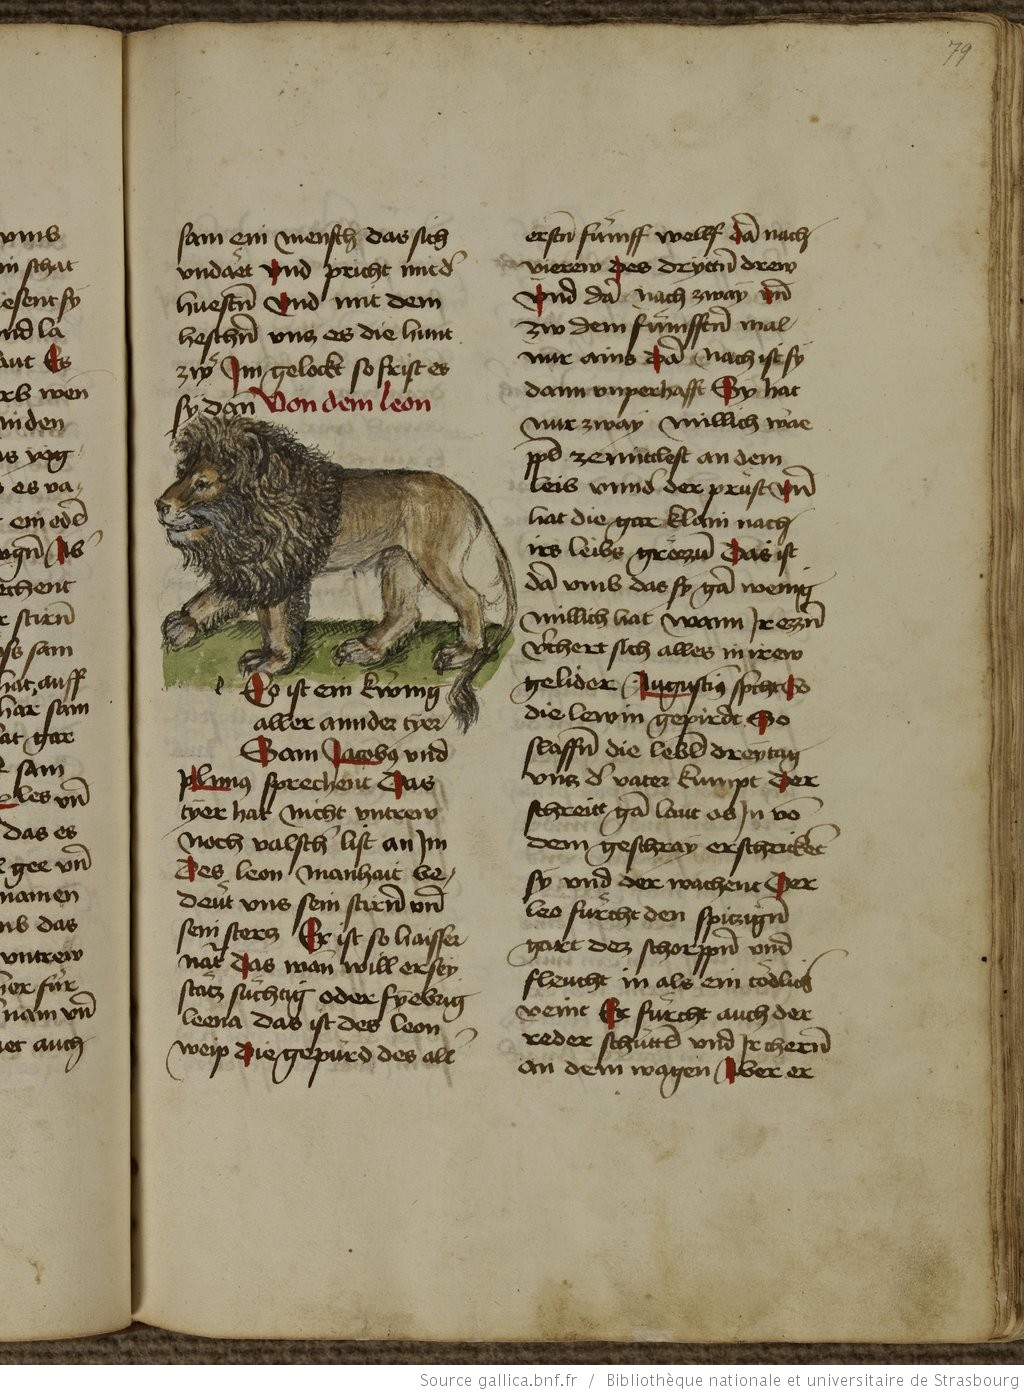 79
vmb
in schat
iesent sy
nd la
aut Es
rb wen
in den
as yog
es va-
ein edel
ugn̄ Ab
echent
r stirn̄
ss sam
hat auff
har sam
at gar
sam
les vn̄
das es
gee vn̄
namen
mb das
vntrew
er für
nam vn̄
et auch
sam ein mensch das sich
vndaͤet vnd pricht mit dˀ
huestn̄ Vnd mit dem
heschn̄ vnz es die hunt
zw Im gelockt so frist es
sy dan̄ Von dem leon
Eo ist ein kwnig
aller annder tyer
Sam Jacobus vnd
plinius sprechent Das
tyer hat nicht vntrew
noch valsch list an Im
Des leon manhait be-
deüt vns sein stirn̄ vn̄
sein stercz Er ist so haisser
nat̄ Das man will er sey
stätz süchtig oder fyebrig
leena das ist des leon
weip Die gepürd des allˀ
erstn̄ fümff welff dā nach
vierew Des dryttn̄ drew
Vnd dā nach zway vn̄
zw dem fümfftn̄ mal
nur ains Dā nach ist sy
dann vnperhafft Sy hat
nur zway millich wae
ppl zemittlest an dem
leib vnnd der prüst vn̄
hat die gar klain nach
irs leibs grözzn̄ Das ist
dā vmb das sy gā wenig
millich hat wann Jr ezzn̄
vˀchert sich alles in irew
gelider Augustinus spˀcht So
die lewin gepirdt So
slaffn̄ die lebl̄ drey tag
vnz dˀ vater kumpt Der
schreitt gā laut ob Jn vō
dem geschray erschricken̄
sy vnd der wachent Der
leo fürcht den spitzign̄
gart dez schorppn̄ vnd
fleucht in als ein tödlich
veint Er fürcht auch der
reder schüttˀ vnd Jr chern̄
an dem wagen Aber er
Source gallica.bnf.fr / Bibliothèque nationale et universitaire de Strasbourg